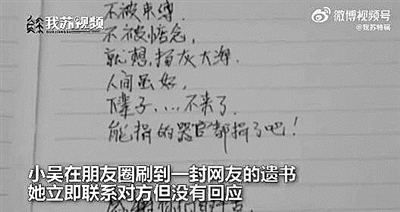 我苏视频
微博视频号
@我苏特稿
不被束缚.
不被惦念,
就想,扬灰大海.
人间虽好,
下辈子,...不来了
能捐的器官都捐了吧!
小吴在朋友圈刷到一封网友的遗书
她立即联系对方但没有回应